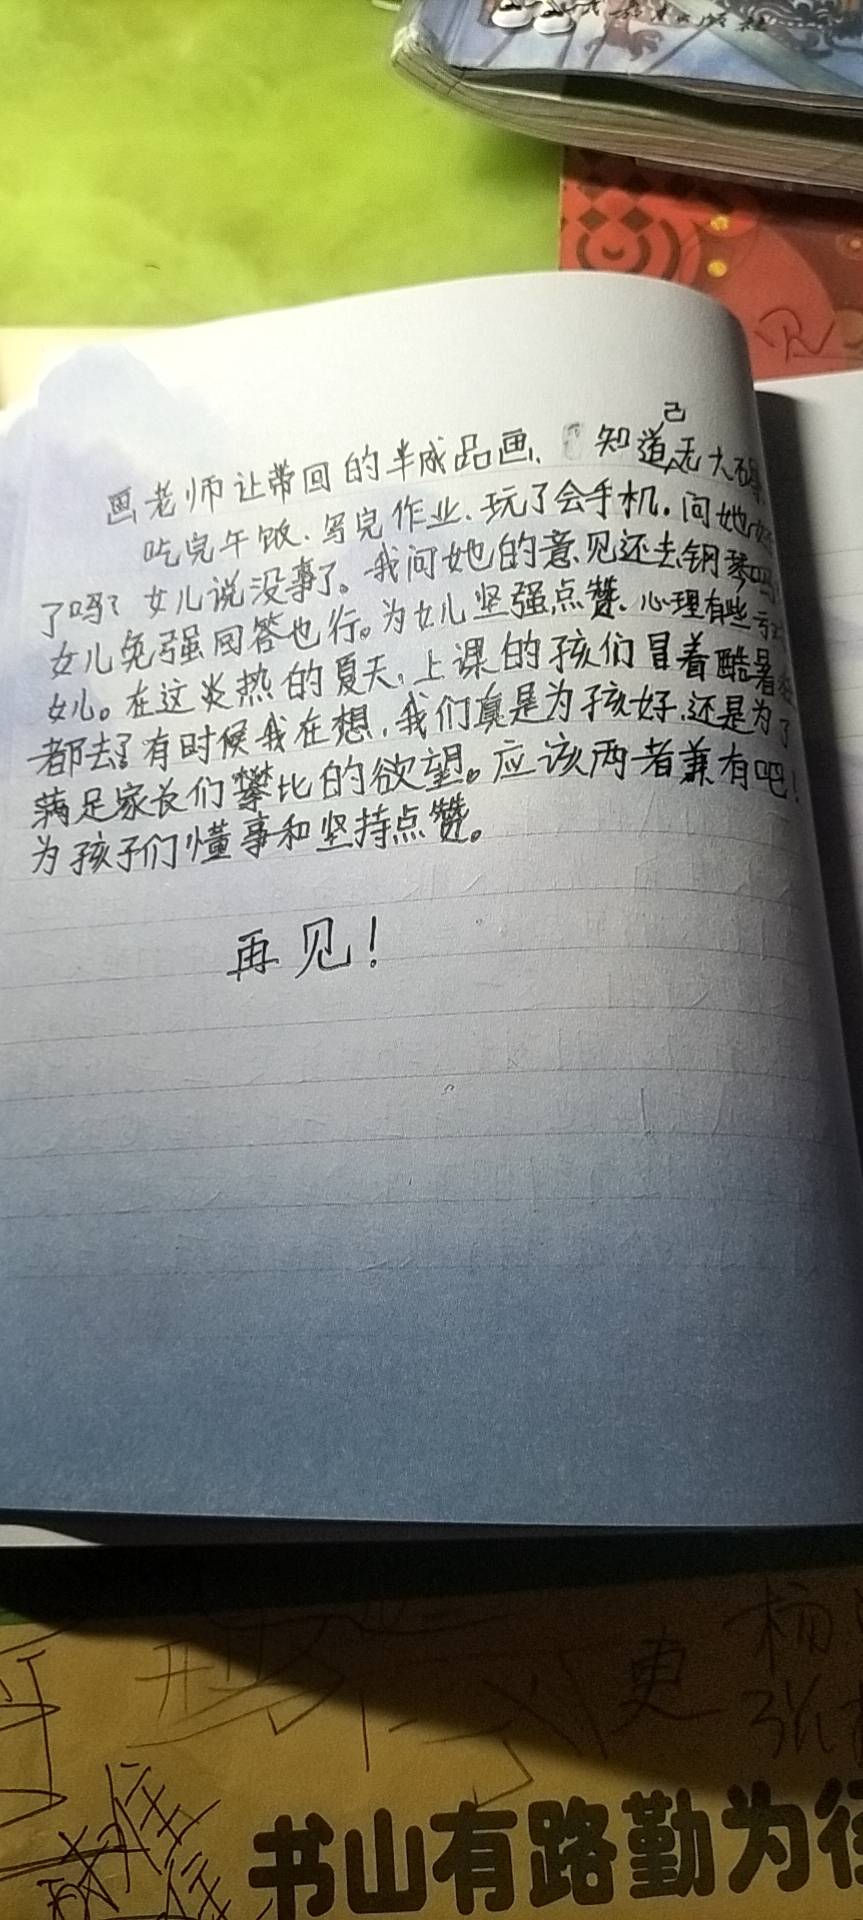 画老师让带回的半成品画、知道已无大碍
吃完午饭、写完作业、玩了会手机。问她好
了吗？女儿说没事了。我问她的意见还去钢琴吗
女儿免强回答也行。为女儿坚强点赞、心理有些亏
女儿。在这炎热的夏天，上课的孩们冒着酷暑
都去了有时候我在想，我们真是为孩好、还是为了
满足家长们攀比的欲望。应该两者兼有吧！
为孩子们懂事和坚持点赞。
再见！
更
书山有路勤为径